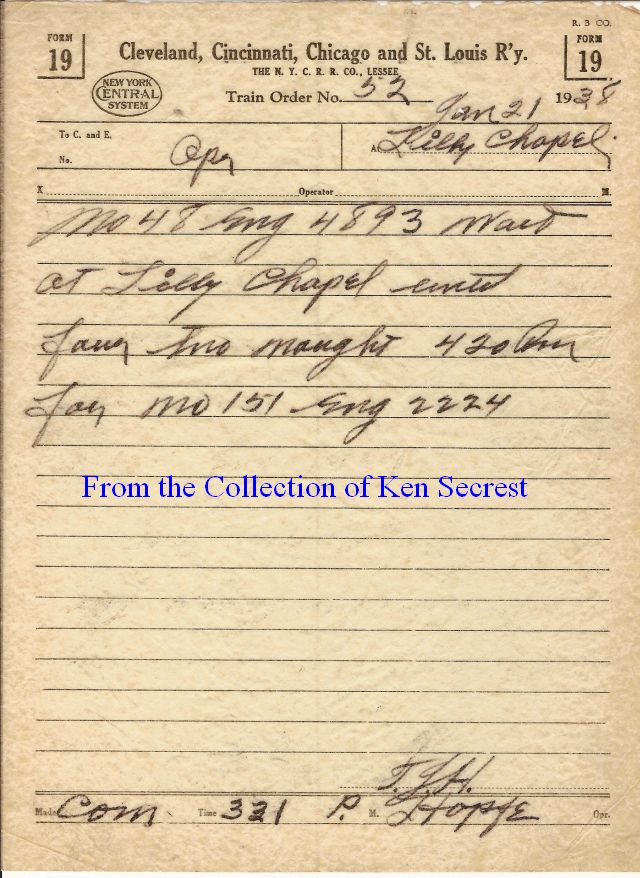 R. 3 CO.
FORM 19
Cleveland, Cincinnati, Chicago and St. Louis R'y.
FORM 19
THE N. Y. C. R. R. CO., LESSEE
NEW YORK CENTRAL SYSTEM
Train Order No. 52 Jan 21 1938
To C. and E. At Lilly Chapel
No. Opr
X Operator M.
No 48 Eng 4893 wait
at Lilly Chapel until
four two nought 420 Pm
for No 151 Eng 2224
From the Collection of Ken Secrest
Made Com Time 321 P. M. Opr.